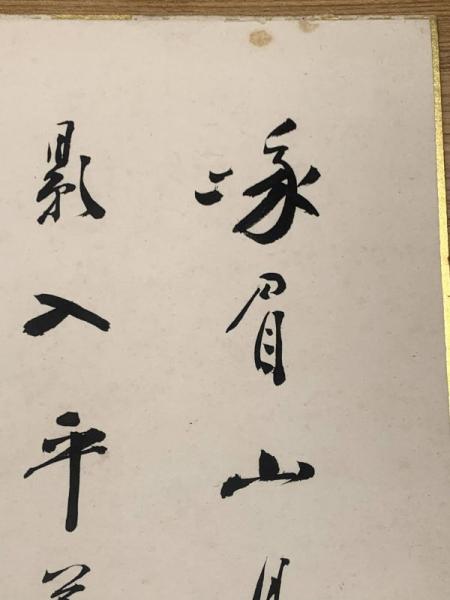 峨眉山
影入平